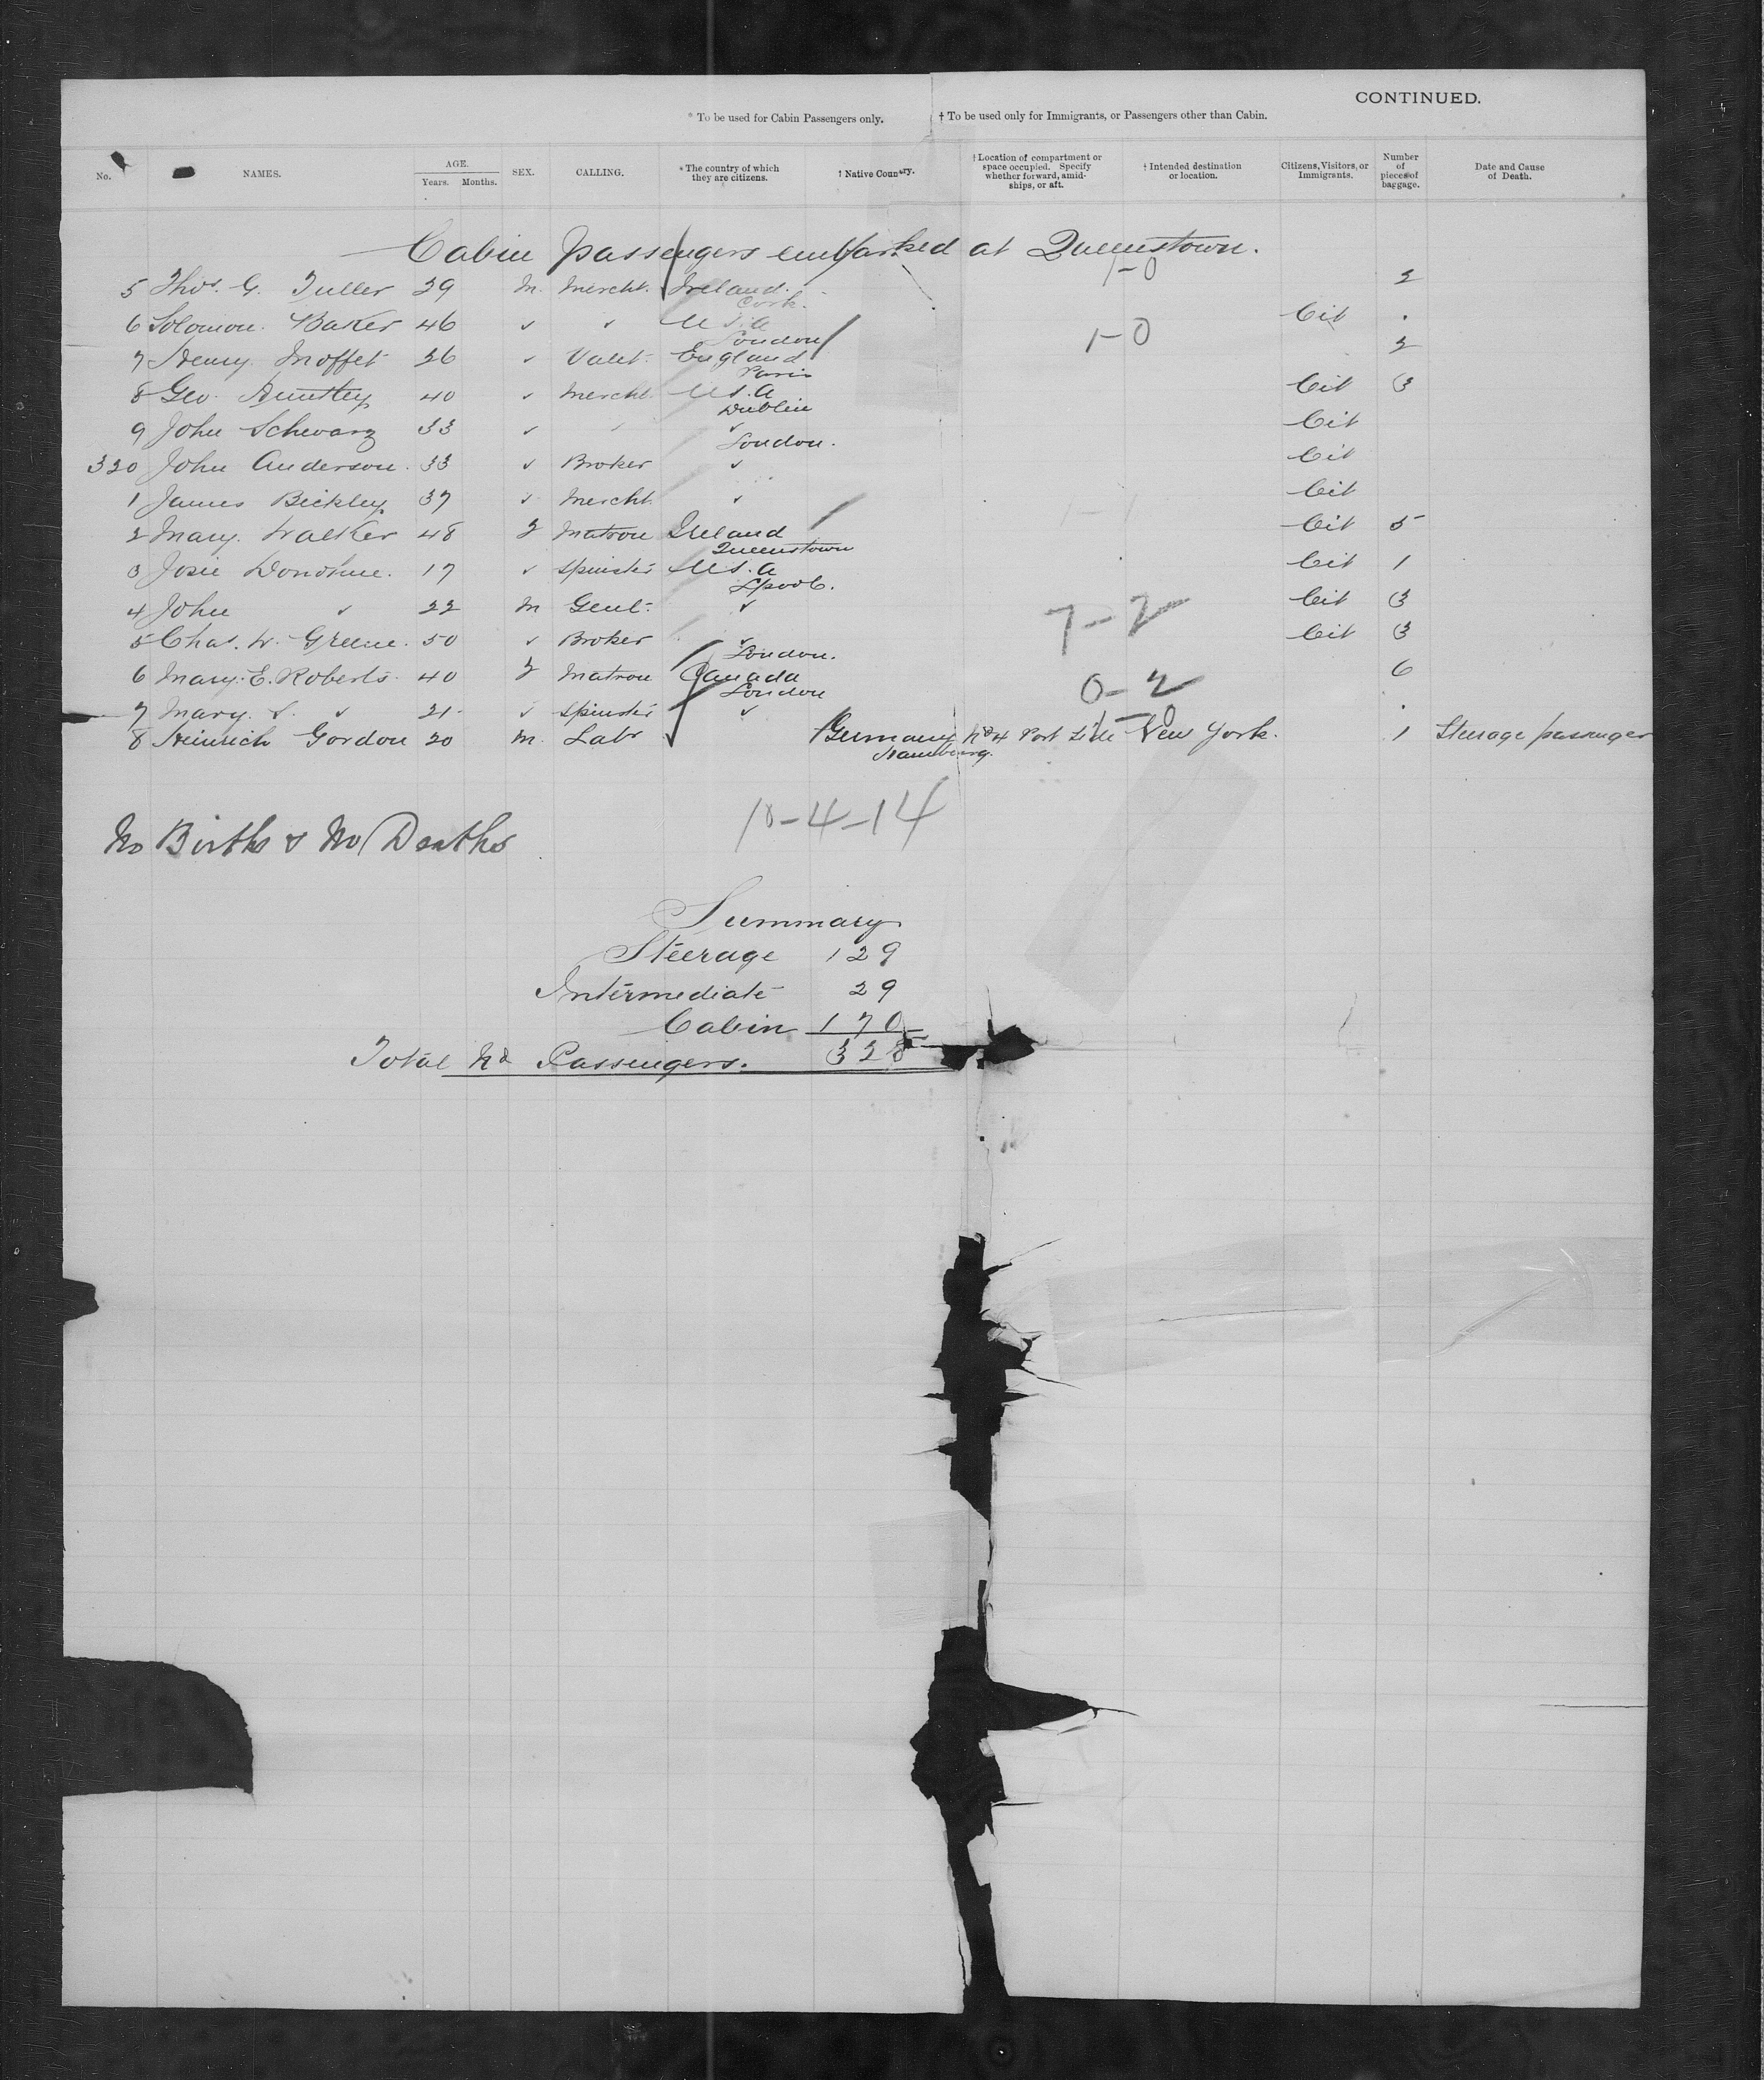 CONTINUED.
* To be used for Cabin Passengers only. † To be used only for Immigrants, or Passengers other than Cabin.
No. NAMES. AGE. Years. Months. SEX. CALLING. * The country of which they are citizens. † Native Country. † Location of compartment or space occupied. Specify whether forward, amidships, or aft. † Intended destination or location. Citizens, Visitors, or Immigrants. Number of pieces of baggage. Date and Cause of Death.
Cabin passengers embarked at Queenstown.
1-0
5 Thos. G. Fuller 29 M. Mercht. Ireland. 2
Cork.
6 Solomon Baker 46 ✓ ✓ U.S.A Cit .
London
1-0
7 Henry Moffet 26 ✓ Valet England 2
Paris
8 Geo. Huntley 40 ✓ Mercht. U.S.A Cit 3
Dublin
9 John Schwarz 33 ✓ ✓ ✓ Cit
London.
320 John Anderson. 33 ✓ Broker ✓ Cit
1 James Bickley 37 ✓ Mercht. ✓ Cit
1-1
2 Mary Walker 48 F Matron Ireland Cit 5
Queenstown
3 Josie Donohue. 17 ✓ Spinster U.S.A Cit 1
Lpool.
4 John ✓ 22 M Gent. ✓ Cit 3
7-2
5 Chas. W. Greene. 50 ✓ Broker ✓ Cit 3
London.
6 Mary E. Roberts 40 F Matron Canada 6
London
0-2
7 Mary ✓ 21 ✓ Spinster ✓ .
1-0
8 Heinrich Gordon 20 M. Labr Germany No 4 Port Side New York. 1 Steerage passenger
Hamburg.
10-4-14
No Births & No Deaths
Summary
Steerage 129
Intermediate 29
Cabin 170
Total No Passengers. 328